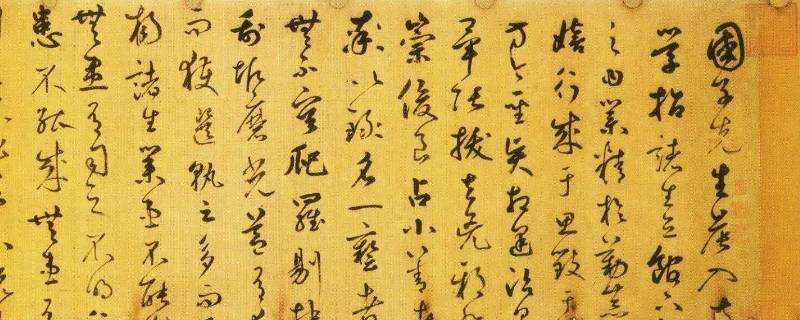 國子先生晨入太
學招諸生立館下
之曰業精於勤荒
嬉行成于思毀于
方今聖賢相逢治具
畢張拔去兇邪
崇俊良占小善者
率以錄名一藝者
無不庸爬羅剔抉
刮垢磨光蓋有幸
而獲選孰云多而
揚諸生業患不能
無患有司之不明
患不能成無患有